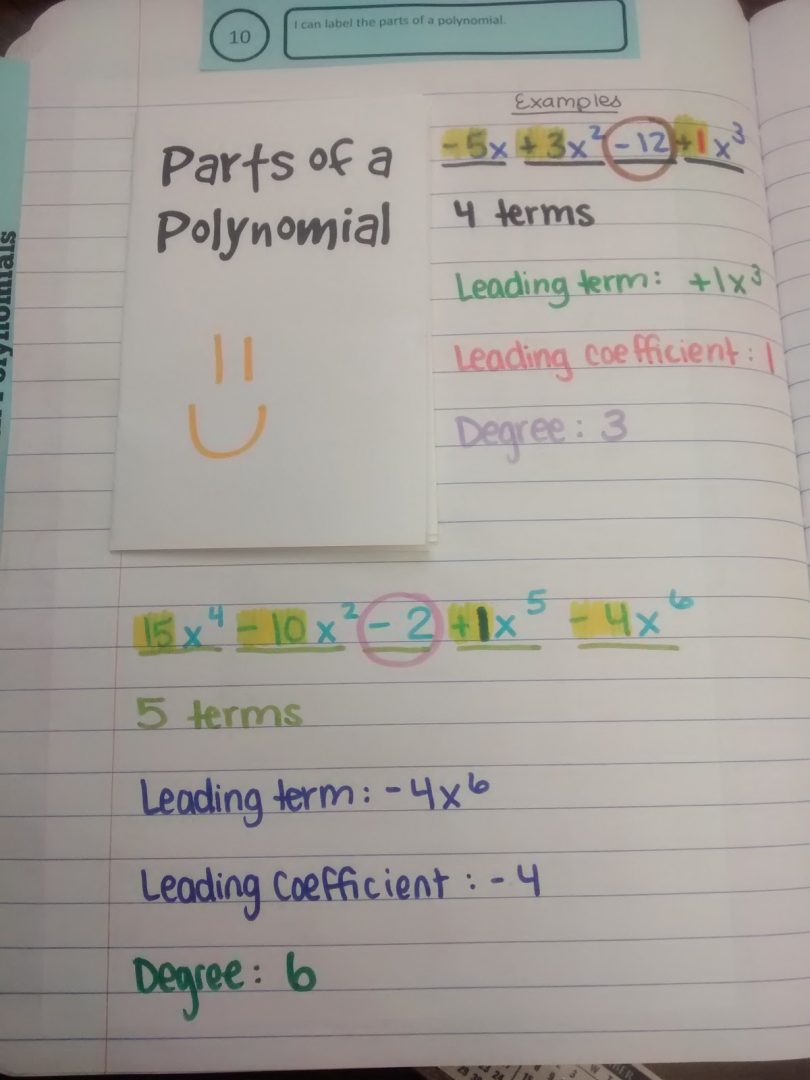 10
I can label the parts of a polynomial.
Polynomials
Parts of a
Polynomial
Examples
-5x +3x² -12 +1x³
4 terms
Leading term: +1x³
Leading coefficient: 1
Degree: 3
15x⁴ -10x² -2 +1x⁵ -4x⁶
5 terms
Leading term: -4x⁶
Leading Coefficient: -4
Degree: 6